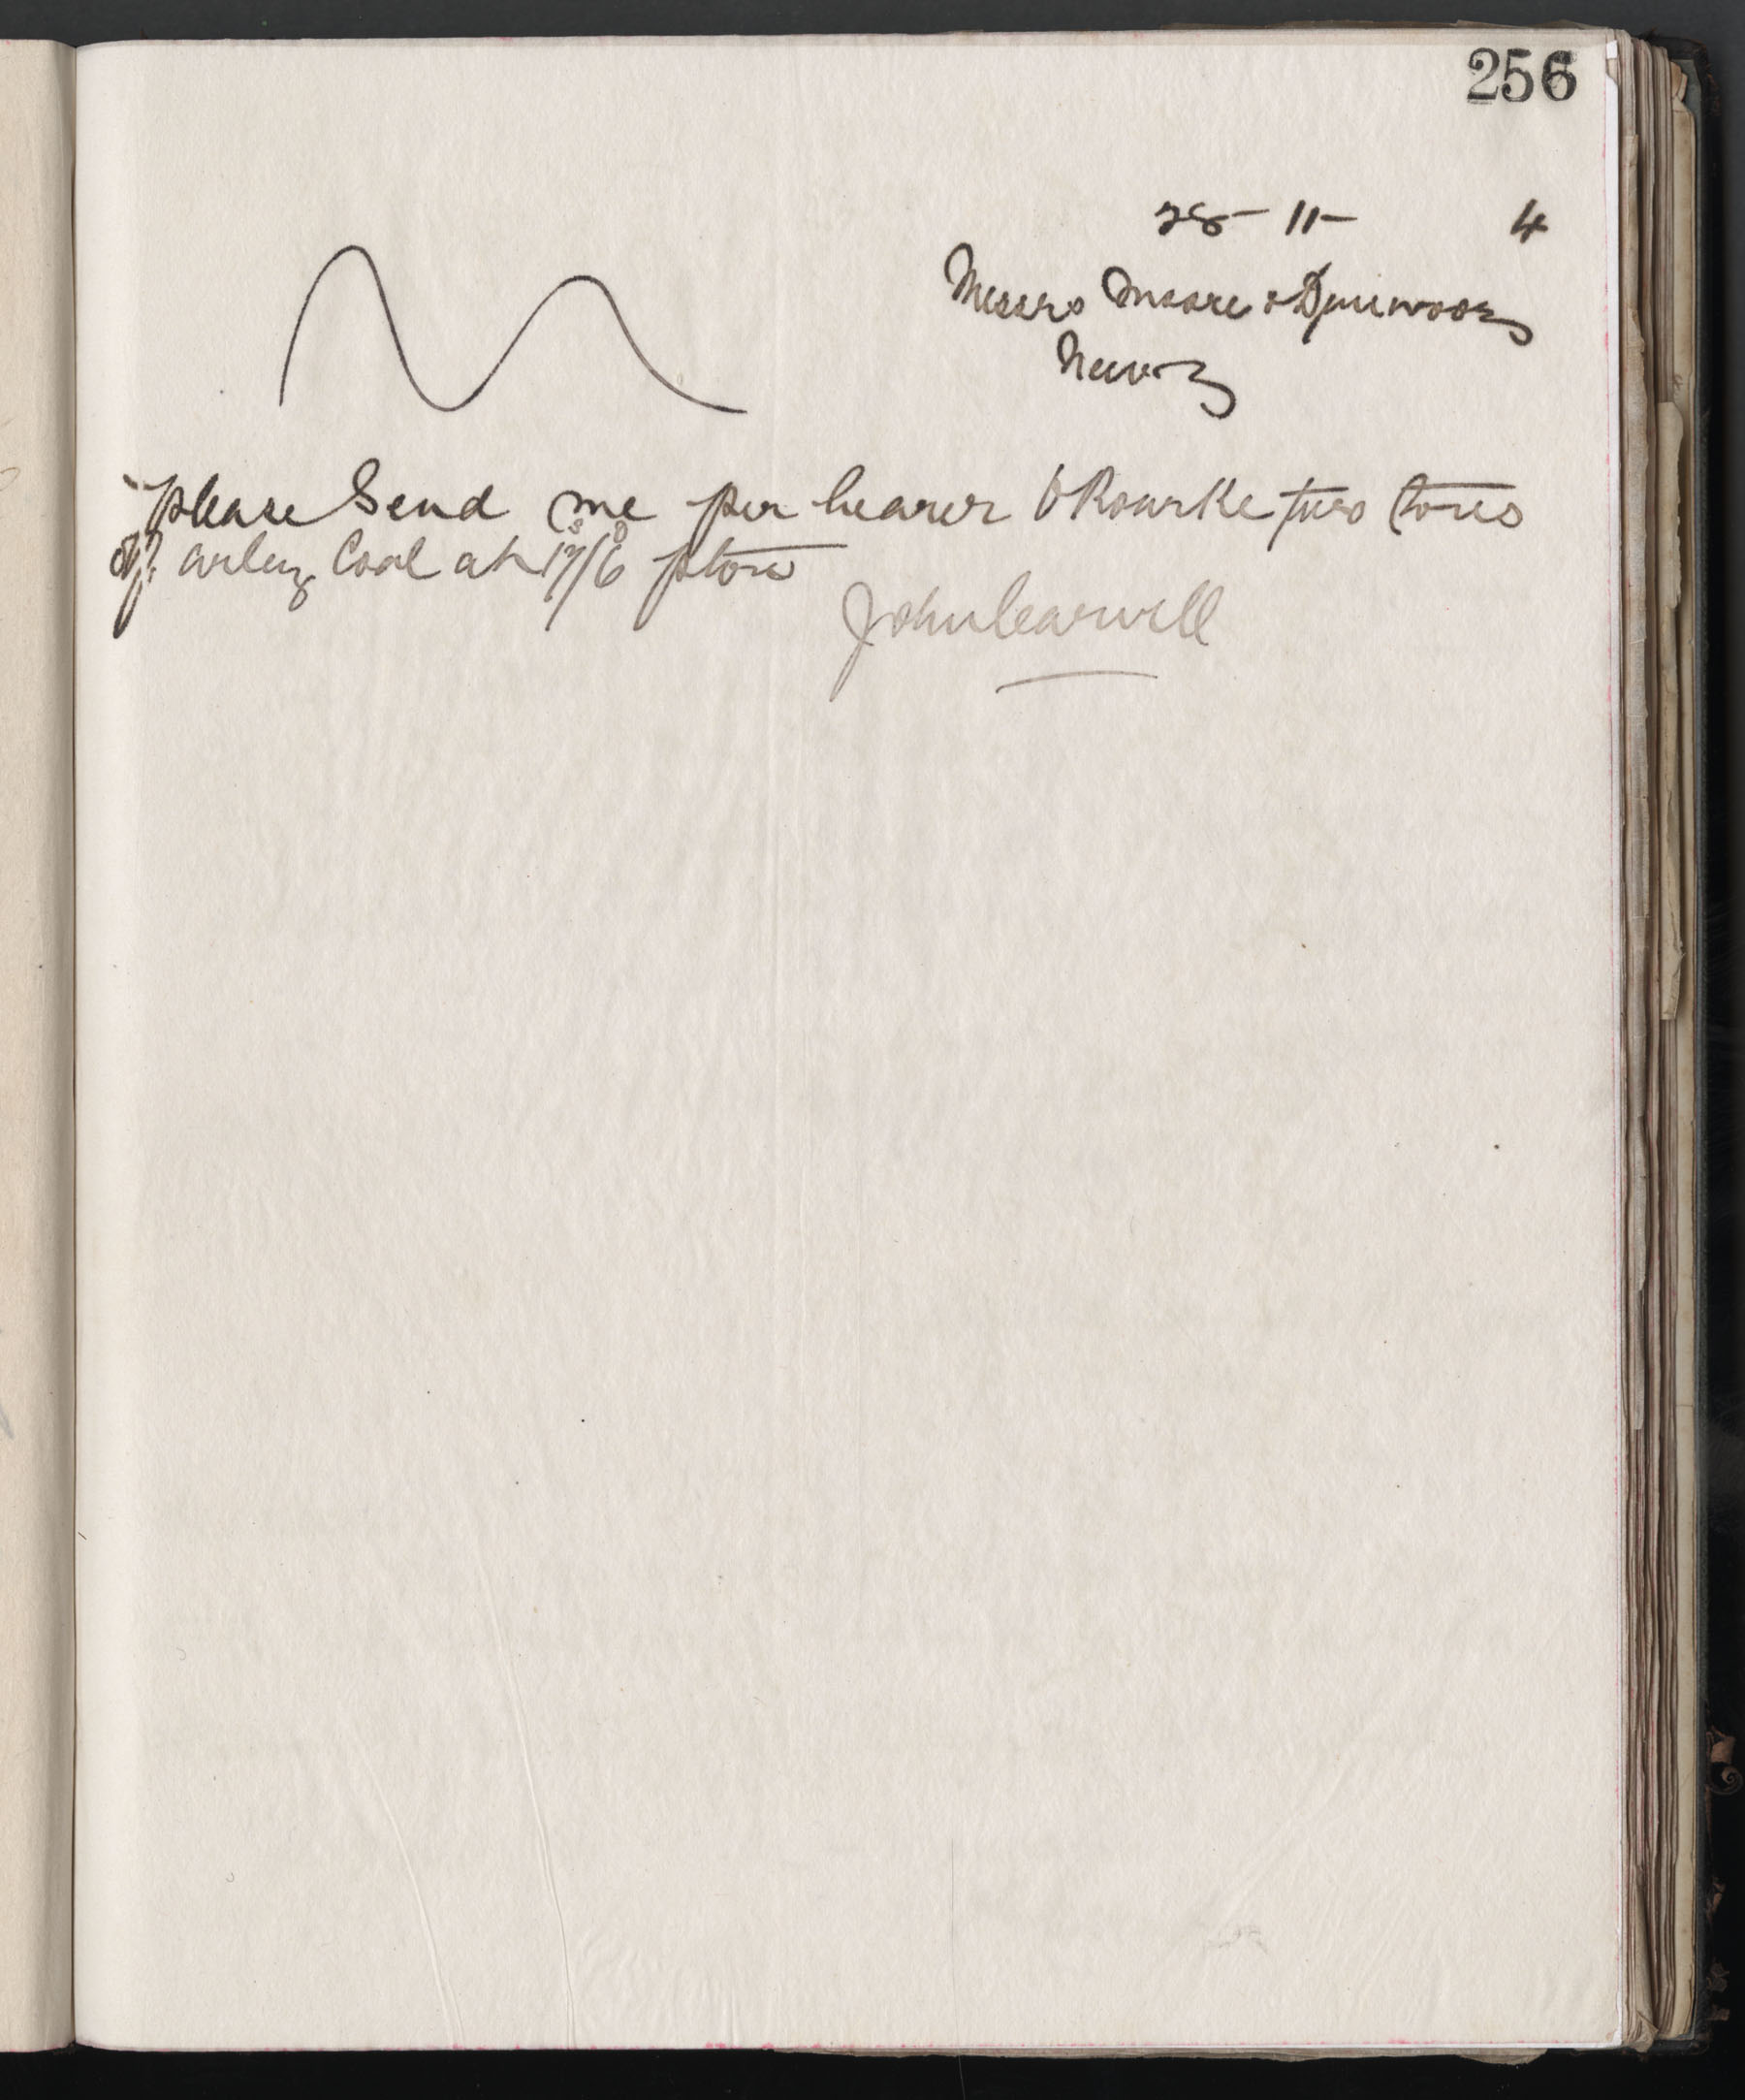 256
28 - 11 - 4
Messrs Moore & Dinwoody
Newry
please Send me per bearer O'Rourke two tons
of arley Coal at 17s/6d p ton
John Carvill